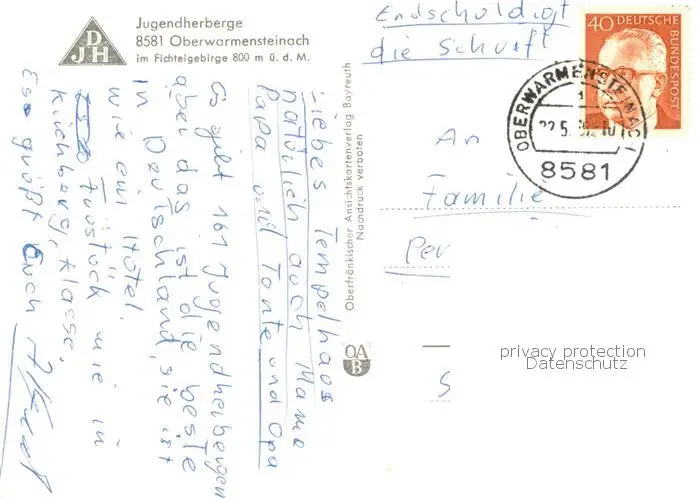 DJH
Jugendherberge
8581 Oberwarmensteinach
im Fichtelgebirge 800 m ü. d. M.
Endschuldigt
die Schrift
40 DEUTSCHE BUNDESPOST
OBERWARMENSTEINACH
8581
An
Familie
Per
S
privacy protection
Datenschutz
Oberfränkischer Ansichtskartenverlag Bayreuth
Nachdruck verboten
OA
B
Liebes Tempelhaos
natürlich auch Mama
Papa und Tante und Opa
Es gibt 161 Jugendherbergen
aber das ist die beste
in Deutschland, sie ist
wie ein Hotel.
Früstück wie in
Kirchberg, klasse.
Es grüßt Euch